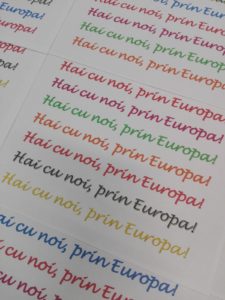 Hai cu noi, prin Europa!
Hai cu noi, prin Europa!
Hai cu noi, prin Europa!
Hai cu noi, prin Europa!
Hai cu noi, prin Europa!
Hai cu noi, prin Europa!
Hai cu noi, prin Europa!
Hai cu noi, prin Europa!
Hai cu noi, prin Europa!
Hai cu noi, prin Europa!
Hai cu noi, prin Europa!
cu noi, prin Europa!
noi, prin Europa!